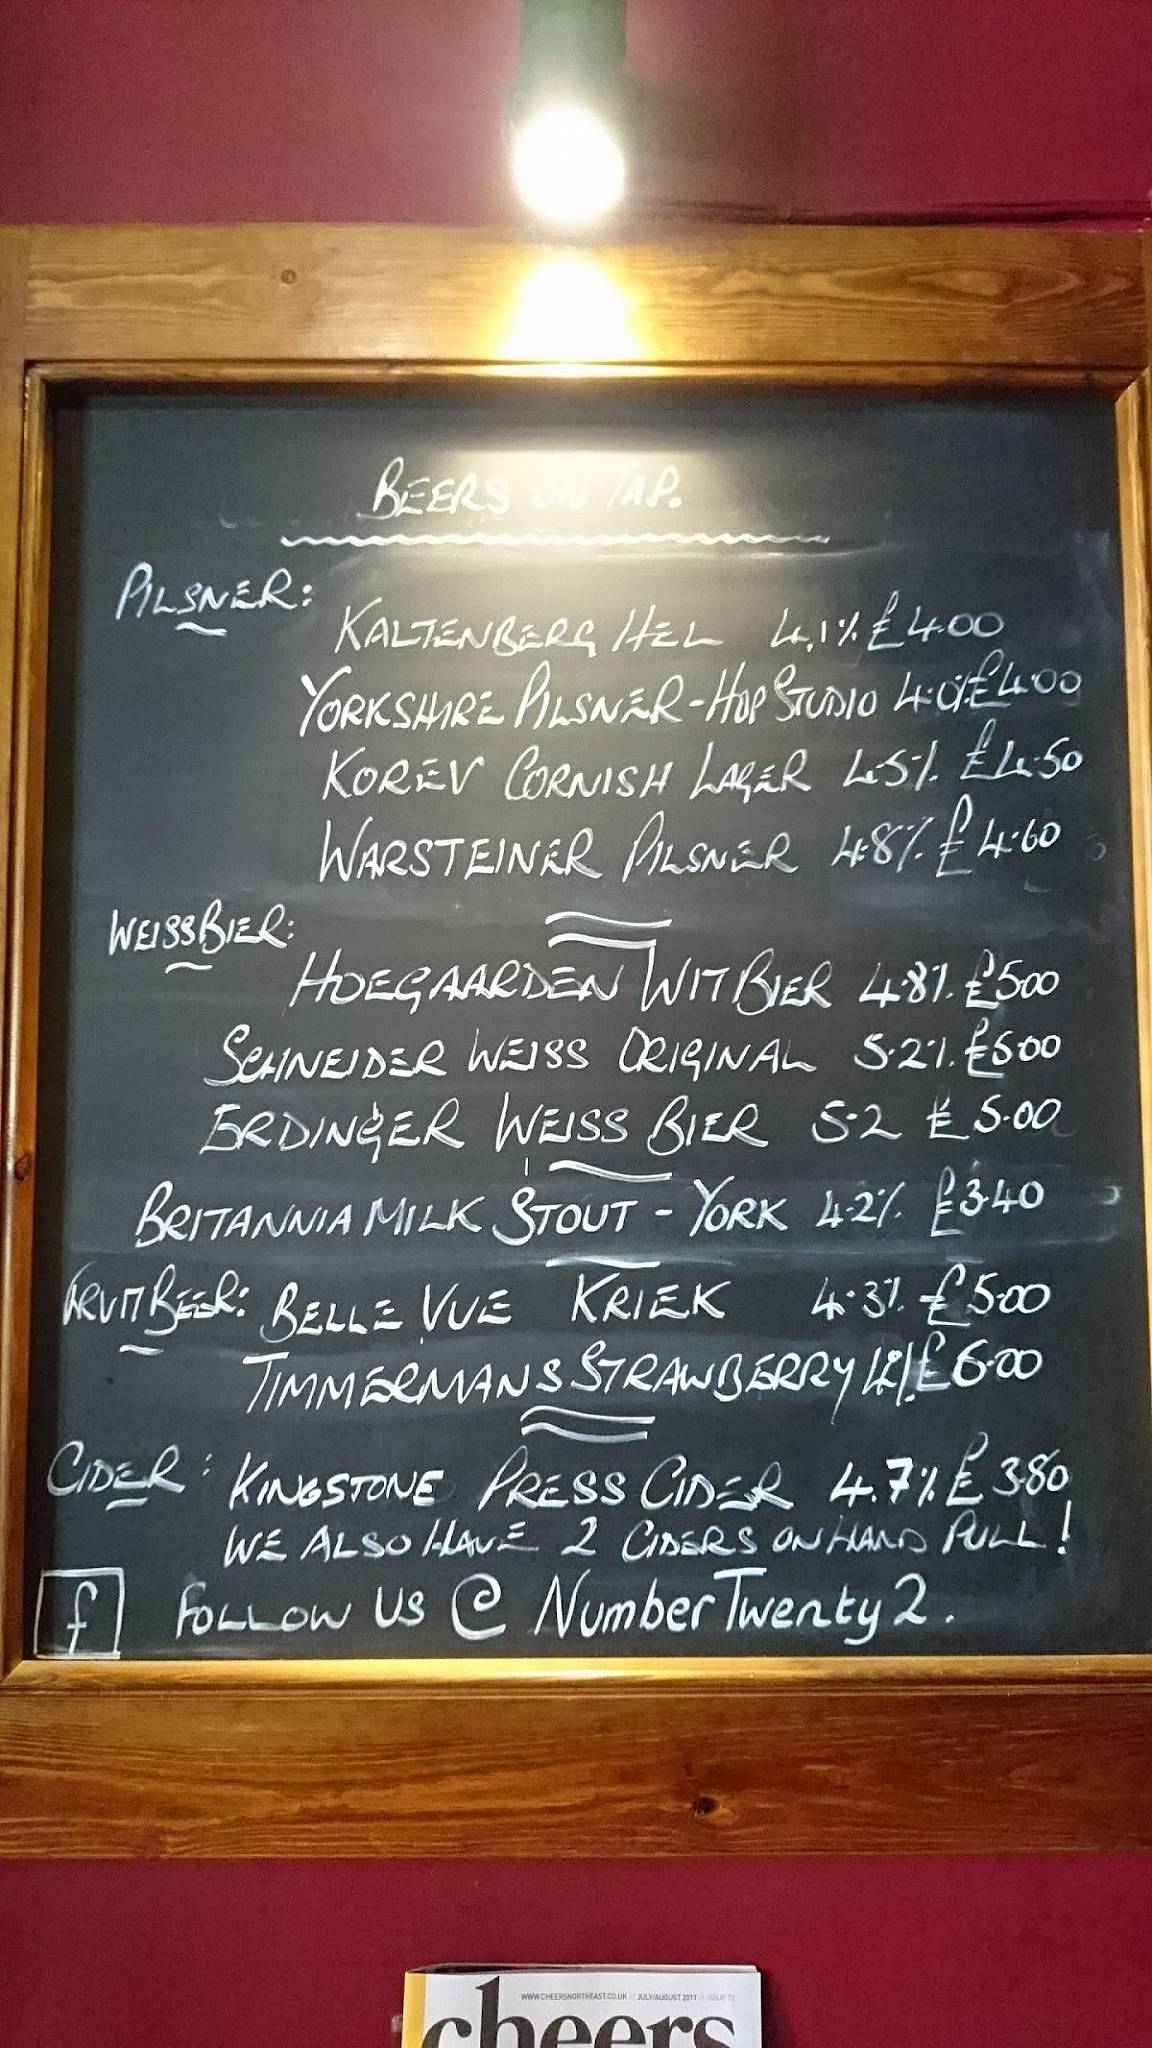 BEERS ON TAP.
PILSNER:
KALTENBERG HEL 4.1% £4.00
YORKSHIRE PILSNER - HOP STUDIO 4.0% £4.00
KOREV CORNISH LAGER 4.5% £4.50
WARSTEINER PILSNER 4.8% £4.60
WEISSBIER:
HOEGAARDEN WITBIER 4.8% £5.00
SCHNEIDER WEISS ORIGINAL 5.2% £5.00
ERDINGER WEISS BIER 5.2 £5.00
BRITANNIA MILK STOUT - YORK 4.2% £3.40
FRUIT BEER: BELLE VUE KRIEK 4.3% £5.00
TIMMERMANS STRAWBERRY £6.00
CIDER: KINGSTONE PRESS CIDER 4.7% £3.80
WE ALSO HAVE 2 CIDERS ON HAND PULL!
f FOLLOW US @ NumberTwenty2.
WWW.CHEERSNORTHEAST.CO.UK // JULY/AUGUST 2017 // ISSUE 72
cheers